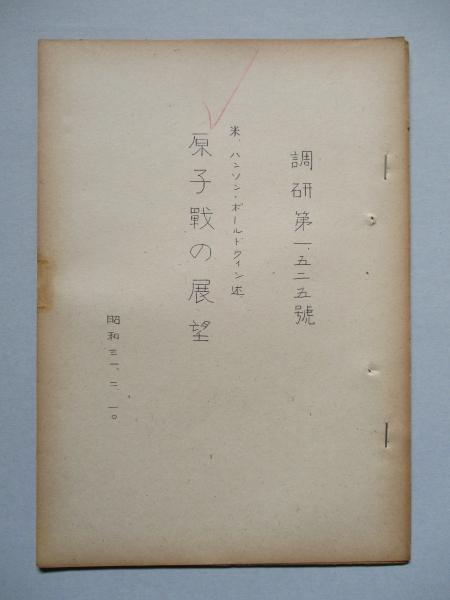 調研第一、五二五號
米、ハンソン・ボールドウィン述
原子戰の展望
昭和三一、二、一〇